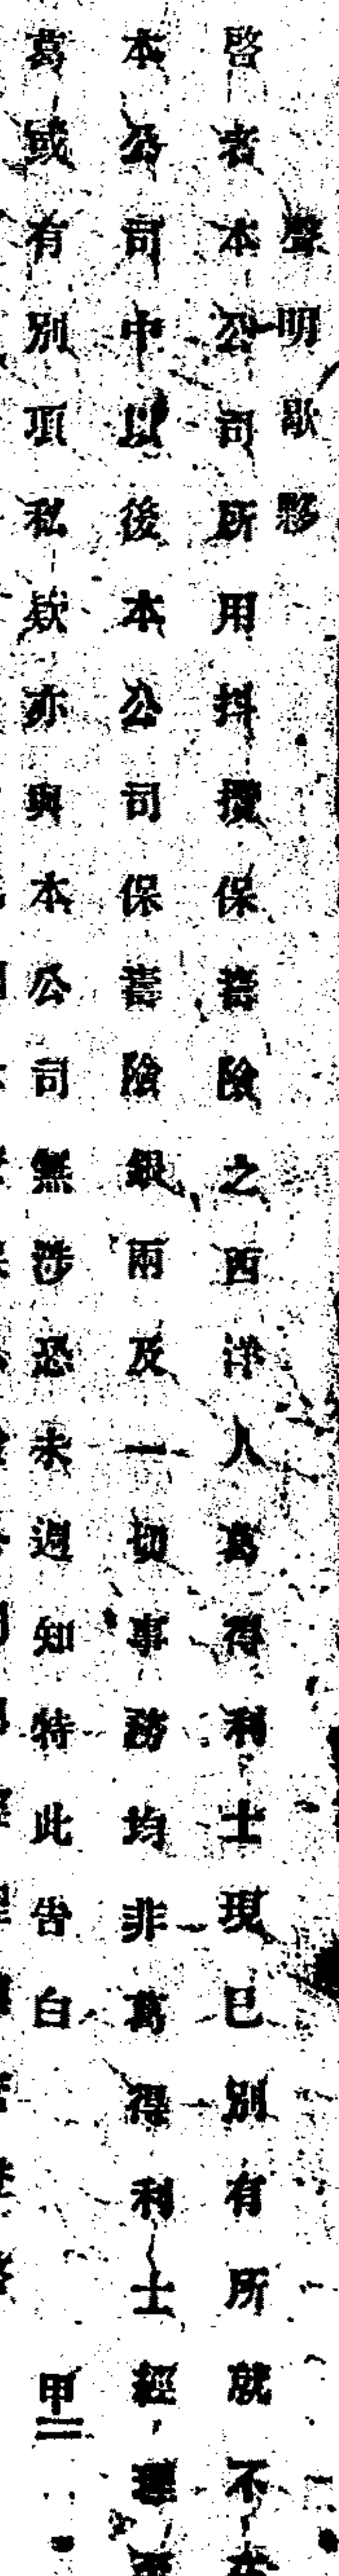 聲明歇夥
啓者本公司所用抖攬保壽險之西洋人葛得利士現已別有所就不在
本公司中以後本公司保壽險銀兩及一切事務均非葛得利士經理
葛或有別項私欵亦與本公司無涉恐未週知特此告白 甲二